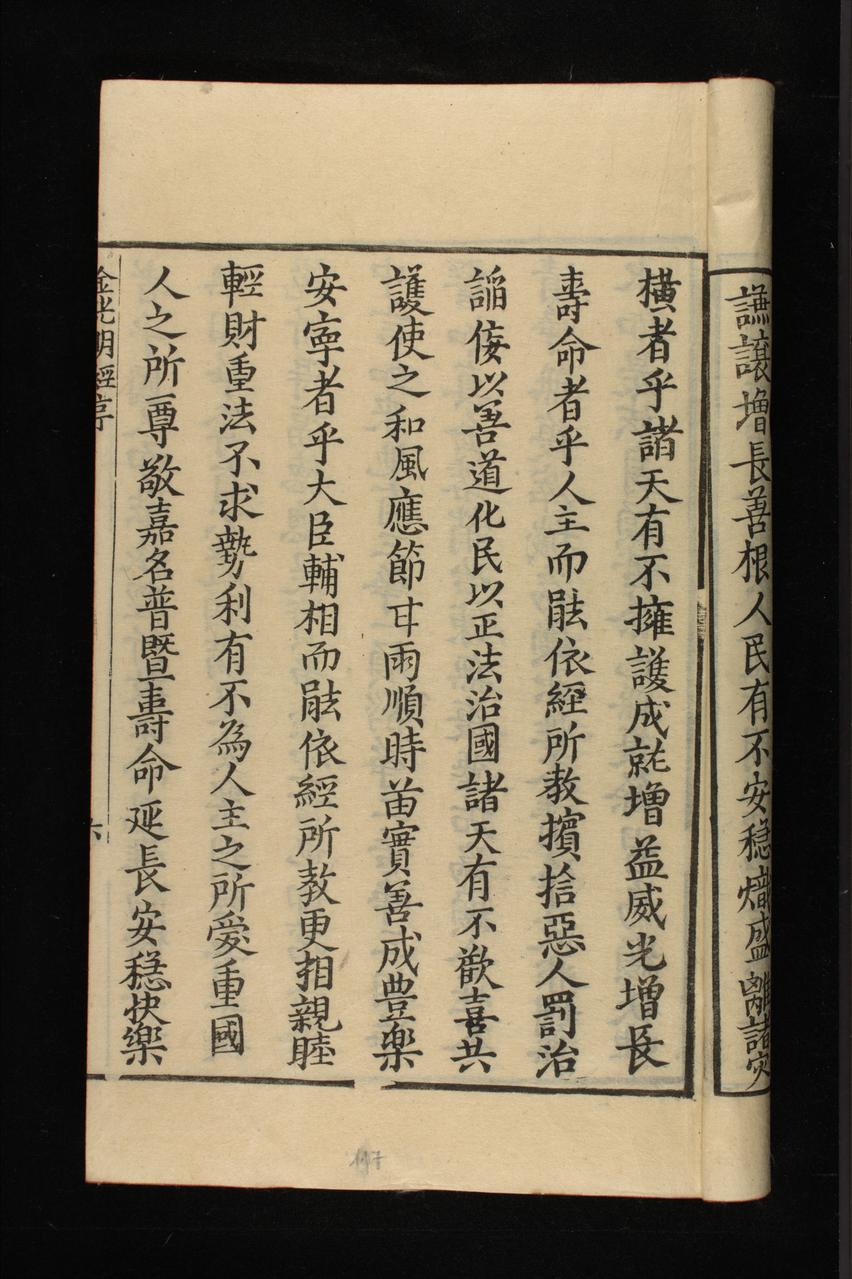 謙譲增長善根人民有不安穩熾盛離諸灾
橫者乎諸天有不擁護成就增益威光增長
壽命者乎人主而能依經所教擯捨惡人罰治
謟佞以善道化民以正法治國諸天有不歡喜共
護使之和風應節甘雨順時苗實善成豊樂
安寧者乎大臣輔相而能依經所教更相親睦
輕財重法不求勢利有不為人主之所愛重國
人之所尊敬嘉名普暨壽命延長安穩快樂
金光明經序
六
147